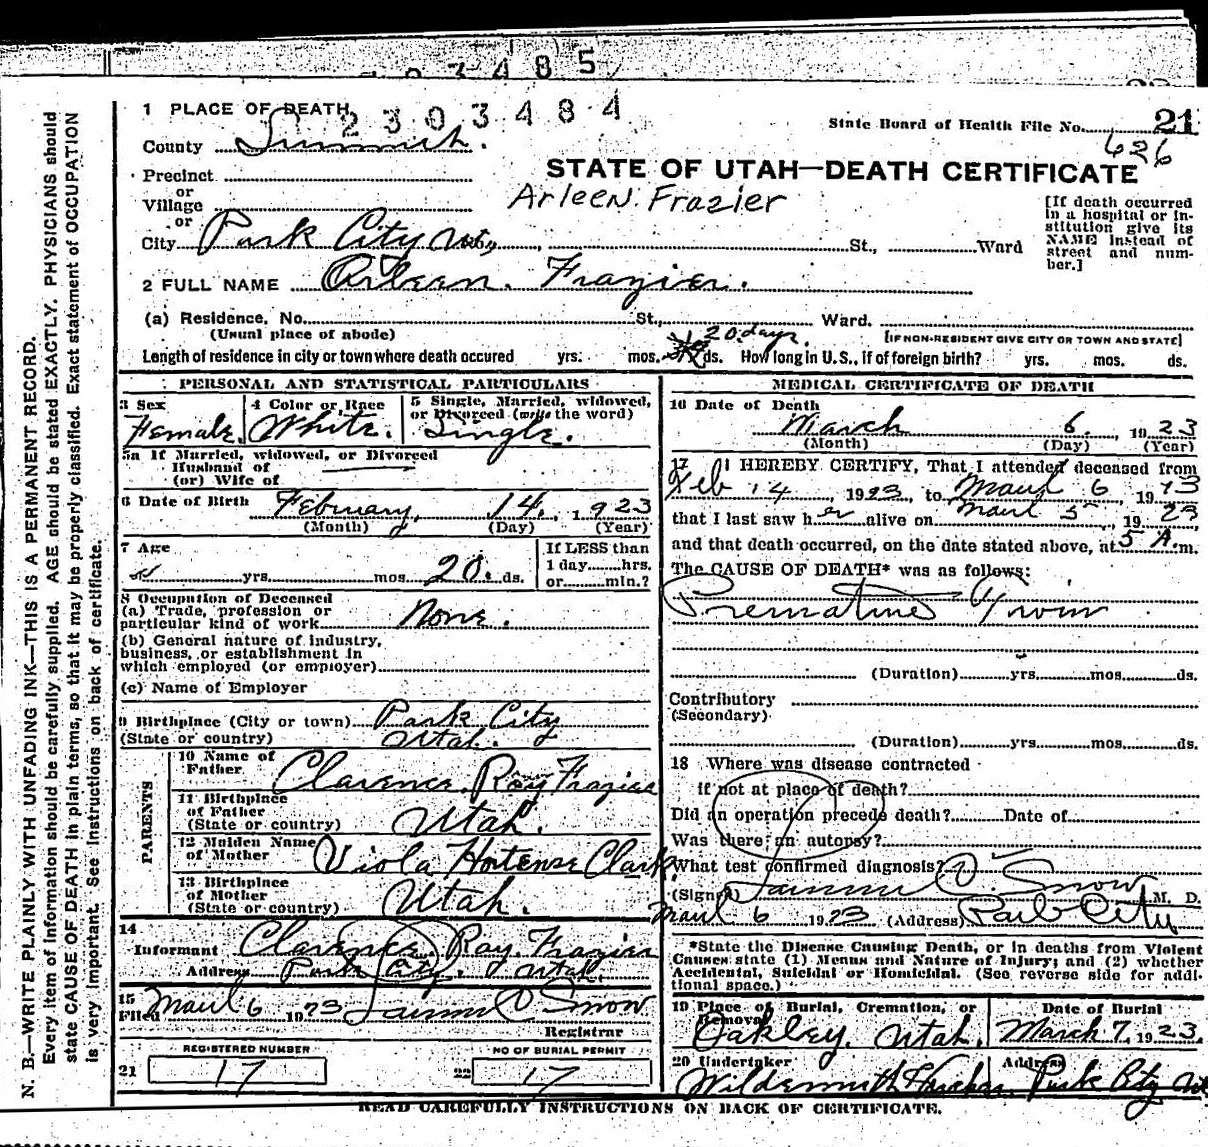 2303484
21
1 PLACE OF DEATH
State Board of Health File No. 626
County Summit.
STATE OF UTAH—DEATH CERTIFICATE
Precinct
or
Village
Arleen. Frazier
[If death occurred in a hospital or institution give its NAME instead of street and number.]
or
City Park City St., Ward
2 FULL NAME Arleen. Frazier.
(a) Residence. No. St., Ward.
(Usual place of abode) [IF NON-RESIDENT GIVE CITY OR TOWN AND STATE]
20 days
Length of residence in city or town where death occured yrs. mos. ds. How long in U.S., if of foreign birth? yrs. mos. ds.
PERSONAL AND STATISTICAL PARTICULARS
3 Sex Female.
4 Color or Race White.
5 Single, Married, widowed, or Divorced (write the word) Single.
5a If Married, widowed, or Divorced
Husband of
(or) Wife of
6 Date of Birth February, 14, 1923
(Month) (Day) (Year)
7 Age
yrs. mos. 20. ds.
If LESS than
1 day hrs.
or min.?
8 Occupation of Deceased
(a) Trade, profession or
particular kind of work None.
(b) General nature of industry,
business, or establishment in
which employed (or employer)
(c) Name of Employer
9 Birthplace (City or town) Park City
(State or country) Utah.
PARENTS
10 Name of Father Clarence Roy Frazier
11 Birthplace of Father (State or country) Utah.
12 Maiden Name of Mother Viola Hortense Clark
13 Birthplace of Mother (State or country) Utah.
14
Informant Clarence Roy Frazier
Address Park City, Utah.
15
Filed 6 1923 Snow
Registrar
REGISTERED NUMBER
21 17
NO OF BURIAL PERMIT
22 17
MEDICAL CERTIFICATE OF DEATH
16 Date of Death
March 6. 1923
(Month) (Day) (Year)
17 I HEREBY CERTIFY, That I attended deceased from
Feb 14, 1923, to March 6, 1923
that I last saw her alive on March 5, 1923,
and that death occurred, on the date stated above, at 5 A.m.
The CAUSE OF DEATH* was as follows:
Premature
(Duration) yrs. mos. ds.
Contributory
(Secondary)
(Duration) yrs. mos. ds.
18 Where was disease contracted
if not at place of death?
Did an operation precede death? Date of
Was there an autopsy?
What test confirmed diagnosis?
(Signed) Snow M. D.
6 1923 (Address) Park City
*State the Disease Causing Death, or in deaths from Violent
Causes state (1) Means and Nature of Injury; and (2) whether
Accidental, Suicidal or Homicidal. (See reverse side for additional space.)
19 Place of Burial, Cremation, or Removal Oakley, Utah.
Date of Burial March 7, 1923.
20 Undertaker
Address Park City
READ CAREFULLY INSTRUCTIONS ON BACK OF CERTIFICATE.
N. B.—WRITE PLAINLY WITH UNFADING INK—THIS IS A PERMANENT RECORD.
Every item of information should be carefully supplied. AGE should be stated EXACTLY. PHYSICIANS should
state CAUSE OF DEATH in plain terms, so that it may be properly classified. Exact statement of OCCUPATION
is very important. See Instructions on back of certificate.